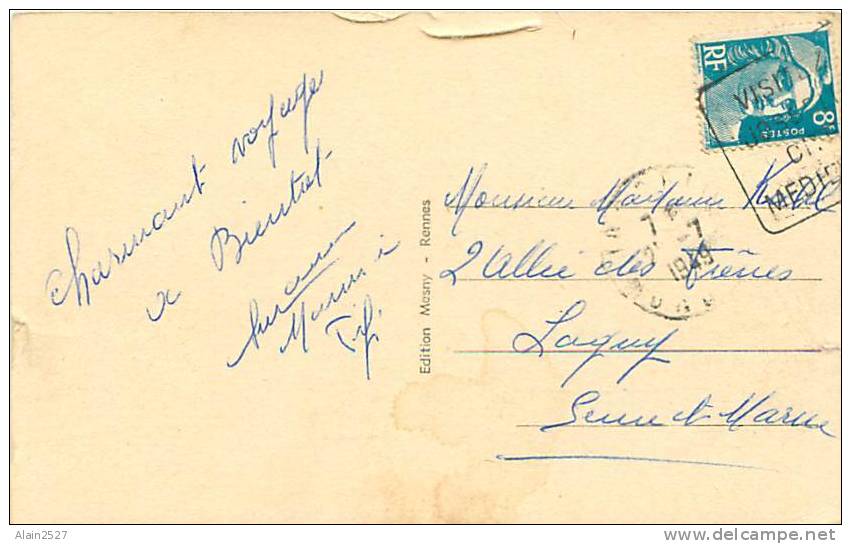 charmant voyage
a Bientot
Mamie
Fifi
Edition Mesny - Rennes
RF
8F
POSTES
VISITEZ
MEDIE
7
7
1949
Monsieur Madame
2 Allée des Frênes
Lagny
Seine et Marne
Alain2527
delcampe.net